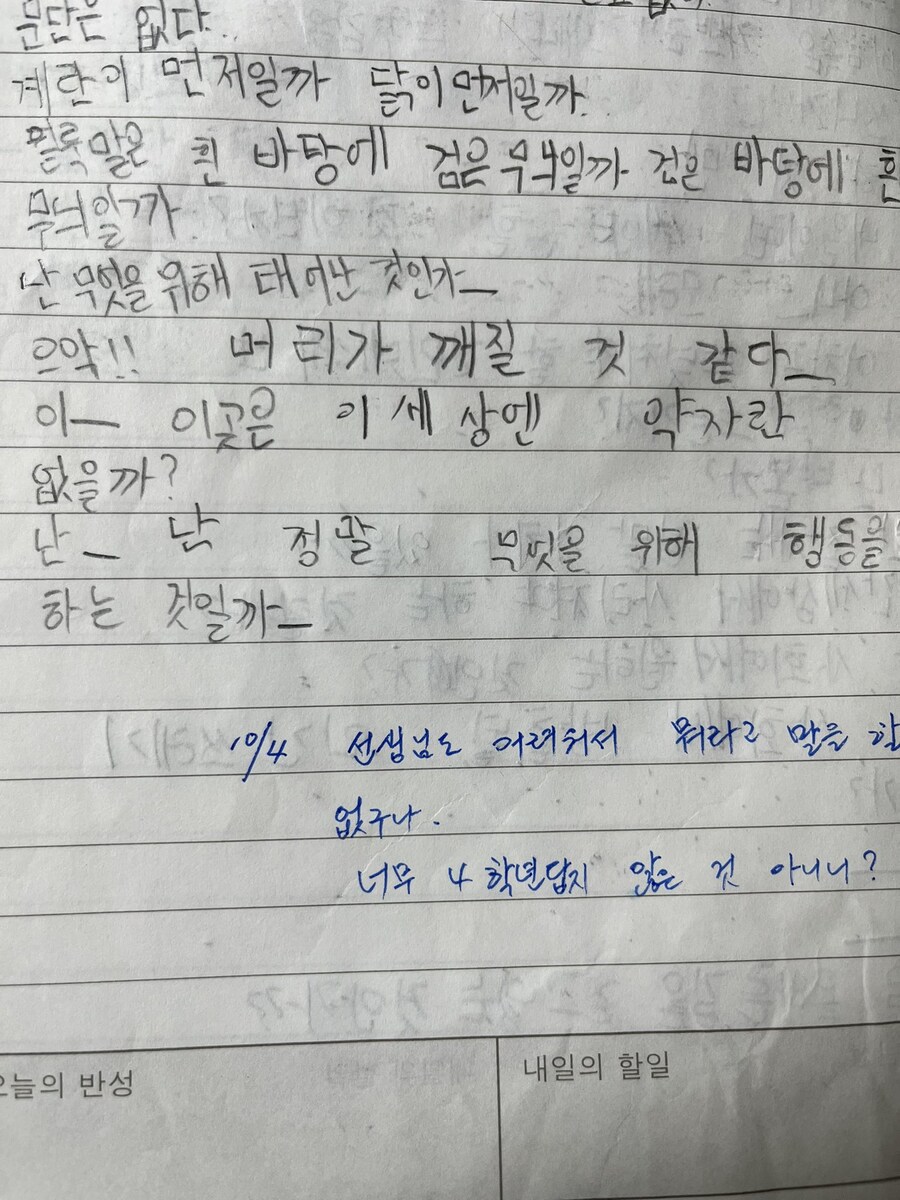 문단은 없다.
계란이 먼저일까 닭이 먼저일까.
얼룩말은 흰 바탕에 검은 무늬일까 검은 바탕에 흰
무늬일까
난 무엇을 위해 태어난 것인가ㅡ
으악!! 머리가 깨질 것 같다ㅡ
이ㅡ 이곳은 이 세상엔 약자란
없을까?
난ㅡ 난 정말 무엇을 위해 행동을
하는 것일까ㅡ
10/4 선생님도 어려워서 뭐라고 말을 할
없구나.
너무 4학년답지 않은 것 아니니?
오늘의 반성
내일의 할일